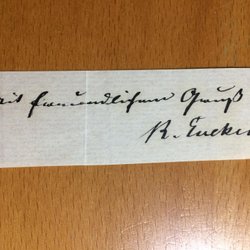 mit freundlichem Gruß
R. Eucken